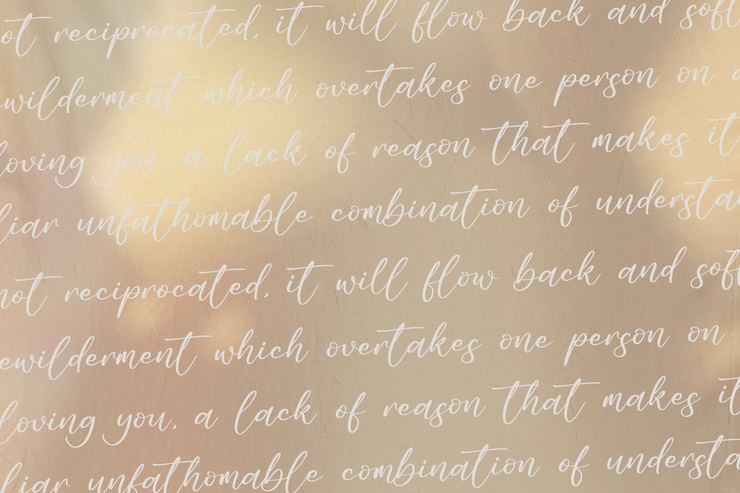 ot reciprocated, it will flow back and sof
wilderment which overtakes one person on a
loving you, a lack of reason that makes it
liar unfathomable combination of understa
not reciprocated, it will flow back and sof
ewilderment which overtakes one person on
loving you, a lack of reason that makes it
liar unfathomable combination of understa